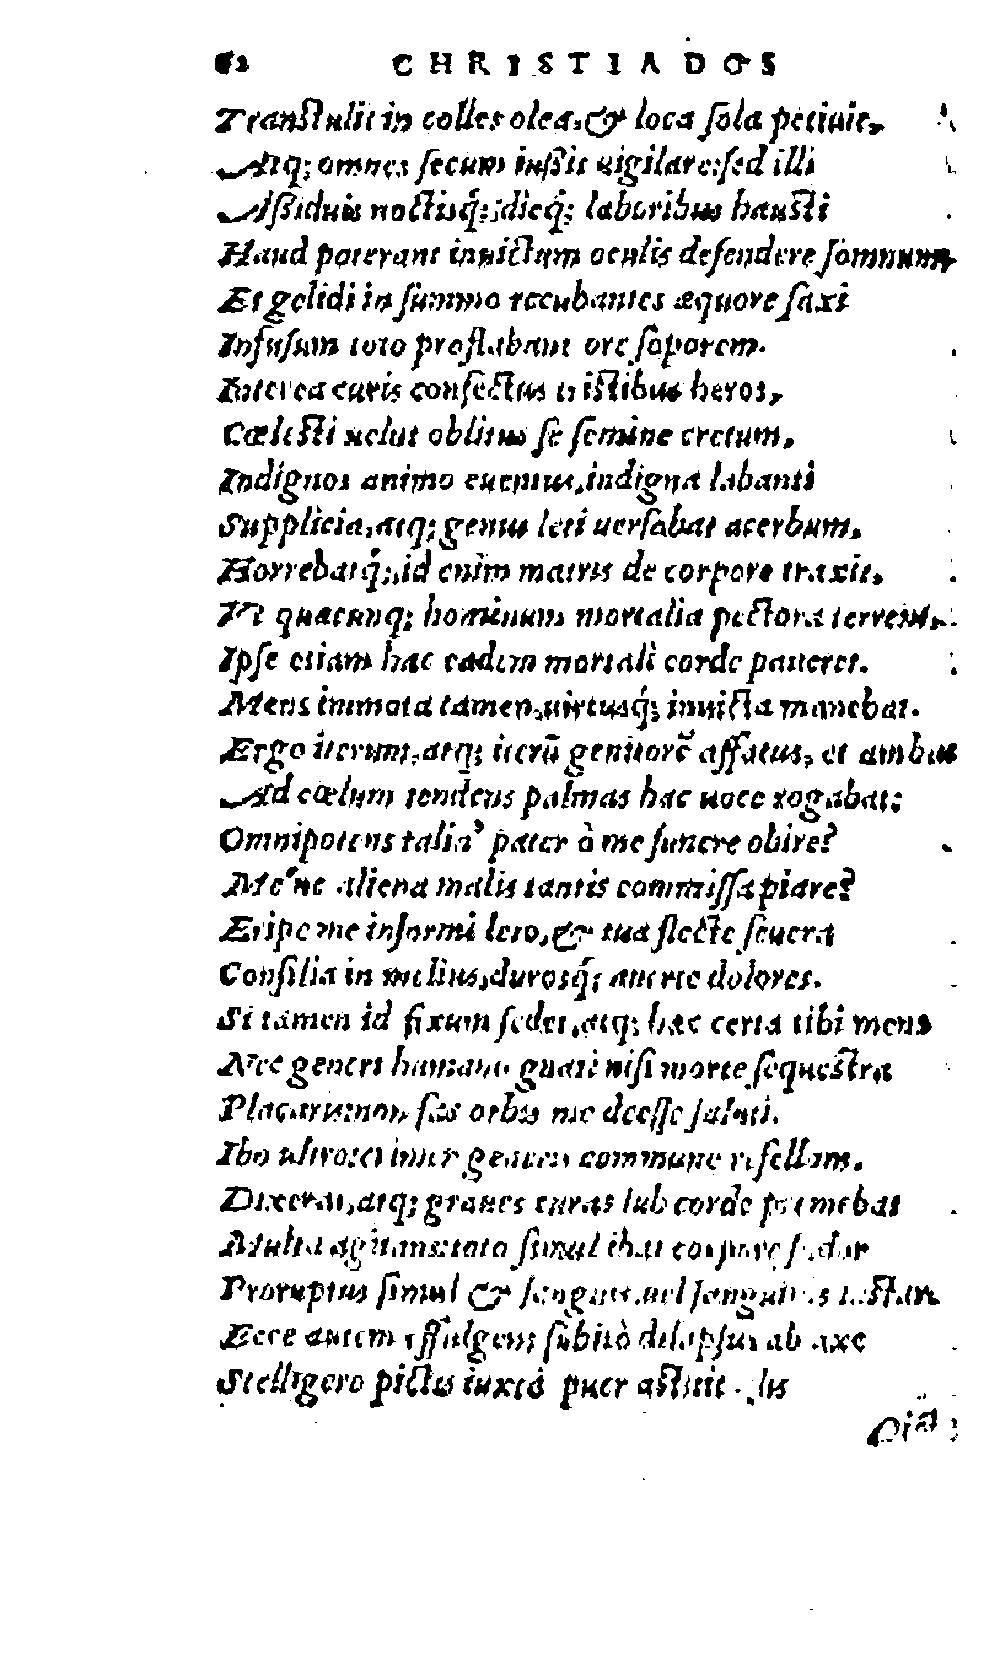 62 CHRISTIADOS
Transtulit in colles olea, & loca sola petiuit,
Atq; omnes secum iussit uigilare: sed illi
Assiduis noctisq́; dieq́; laboribus hausti
Haud poterant inuictum oculis defendere somnum,
Et gelidi in summo recubantes æquore saxi
Infusum toto proflabant ore soporem.
Interea curis confectus tristibus heros,
Cœlesti uelut oblitus se semine cretum,
Indignos animo euentus, indigna labanti
Supplicia, atq; genus leti uersabat acerbum,
Horrebatq́; id enim matris de corpore traxit,
Vt quacunq; hominum mortalia pectora terrent,
Ipse etiam hac eadem mortali corde paueret.
Mens immota tamen, uirtusq́; inuicta manebat.
Ergo iterum, atq; iterũ genitorẽ affatus, et ambas
Ad cœlum tendens palmas hac uoce rogabat;
Omnipotens talia' pater ò me funere obire?
Me'ne aliena malis tantis commissa piare?
Eripe me informi leto, & tua flecte seuera
Consilia in melius, durosq́; auerte dolores.
Si tamen id fixum sedet, atq; hac certa tibi mens
Nec generi humano gnati nisi morte sequestra
Placarier non fas orbis me deesse saluti.
Ibo ultro: iter gentem commune refellam.
Dixerat, atq; graues curas sub corde premebat
Multa agitans: toto simul ibat corpore sudor
Proruptus simul & sanguis, uel sanguinis instar.
Ecce autem effulgens subitò dilapsus ab axe
Stelligero pictis iuxtà puer astitit alis